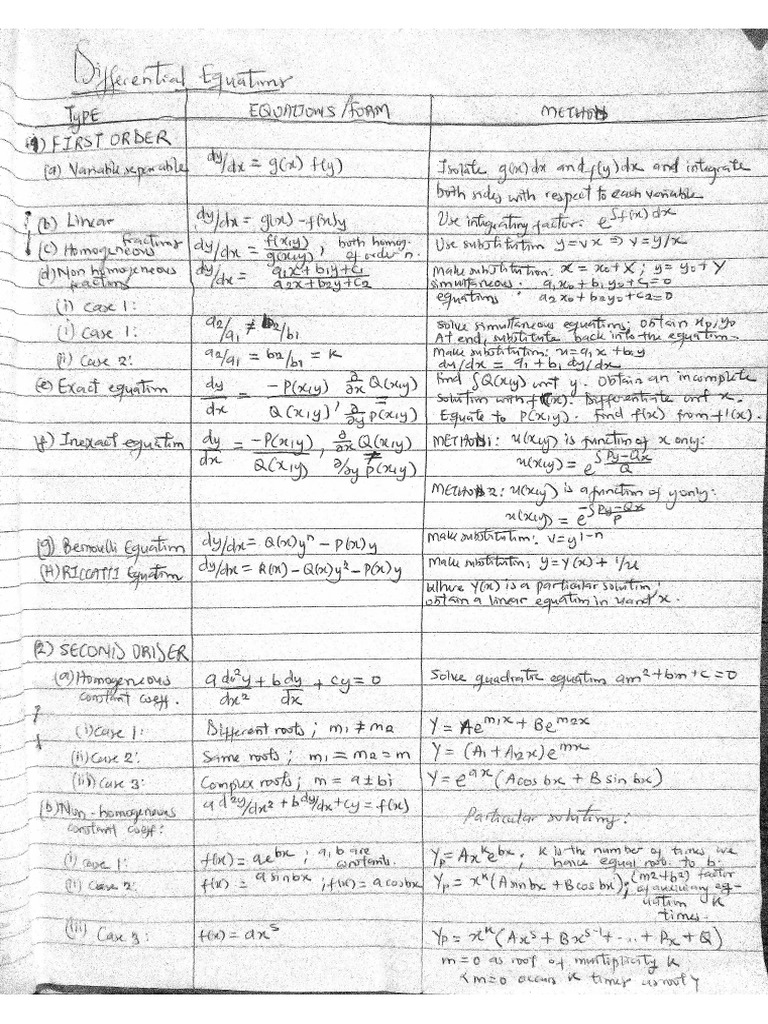 Differential Equations
TYPE EQUATIONS/FORM METHOD
(1) FIRST ORDER
(a) Variable seperable dy/dx = g(x) f(y) Isolate g(x)dx and f(y)dx and integrate
both sides with respect to each variable
(b) Linear dy/dx = g(x) - f(x)y Use integrating factor: e^∫f(x)dx
(c) Homogeneous fractions dy/dx = f(x,y)/g(x,y), both homog. of order n. Use substitution y=vx ⇒ v=y/x
(d) Non homogeneous fractions dy/dx = a1x+b1y+c1/a2x+b2y+c2 Make substitution: x = x0+X; y=y0+Y
simultaneous: a1x0+b1y0+c1=0
equations a2x0+b2y0+c2=0
(i) Case 1:
(i) Case 1: a2/a1 ≠ b2/b1 solve simultaneous equation, obtain x0,y0
At end, substitute back into the equation.
(ii) Case 2: a2/a1 = b2/b1 = K Make substitution: u=a1x+b1y
du/dx = a1+b1 dy/dx
(e) Exact equation dy/dx = -P(x,y)/Q(x,y), ∂/∂x Q(x,y) = ∂/∂y P(x,y) Find ∫Q(x,y) wrt y. Obtain an incomplete
solution with f(x). Differentiate wrt x.
Equate to P(x,y). Find f(x) from f'(x).
(f) Inexact equation dy/dx = -P(x,y)/Q(x,y), ∂/∂x Q(x,y) ≠ ∂/∂y P(x,y) METHOD 1: u(x,y) is function of x only:
u(x,y) = e^∫Py-Qx/Q
METHOD 2: u(x,y) is a function of y only:
u(x,y) = e^-∫Py-Qx/P
(g) Bernoulli Equation dy/dx = Q(x)y^n - P(x)y Make substitution: v=y^1-n
(H) RICCATTI Equation dy/dx = R(x) - Q(x)y² - P(x)y Make substitution: y=Y(x) + 1/u
Where Y(x) is a particular solution;
obtain a linear equation in u and x.
(2) SECOND ORDER
(a) Homogeneous constant coeff. a d²y/dx² + b dy/dx + cy = 0 Solve quadratic equation am²+bm+c=0
(i) Case 1: Different roots; m1 ≠ m2 Y = Ae^m1x + Be^m2x
(ii) Case 2: Same roots; m1 = m2 = m Y = (A1 + A2x)e^mx
(iii) Case 3: Complex roots; m = a±bi Y = e^ax (A cos bx + B sin bx)
(b) Non-homogenous constant coeff: a d²y/dx² + b dy/dx + cy = f(x) Particular solutions:
(i) Case 1: f(x) = ae^bx; a,b are constants. Yp = Ax^k e^bx; K is the number of times we
have equal root to b.
(ii) Case 2: f(x) = a sinbx; f(x) = a cosbx Yp = x^k (A sin bx + B cos bx); (m²+b²) factor
of auxiliary equation K
times.
(iii) Case 3: f(x) = ax^s Yp = x^k (Ax^s + Bx^s-1 + ... + Px + Q)
m=0 as root of multiplicity k
m=0 occurs K times as root